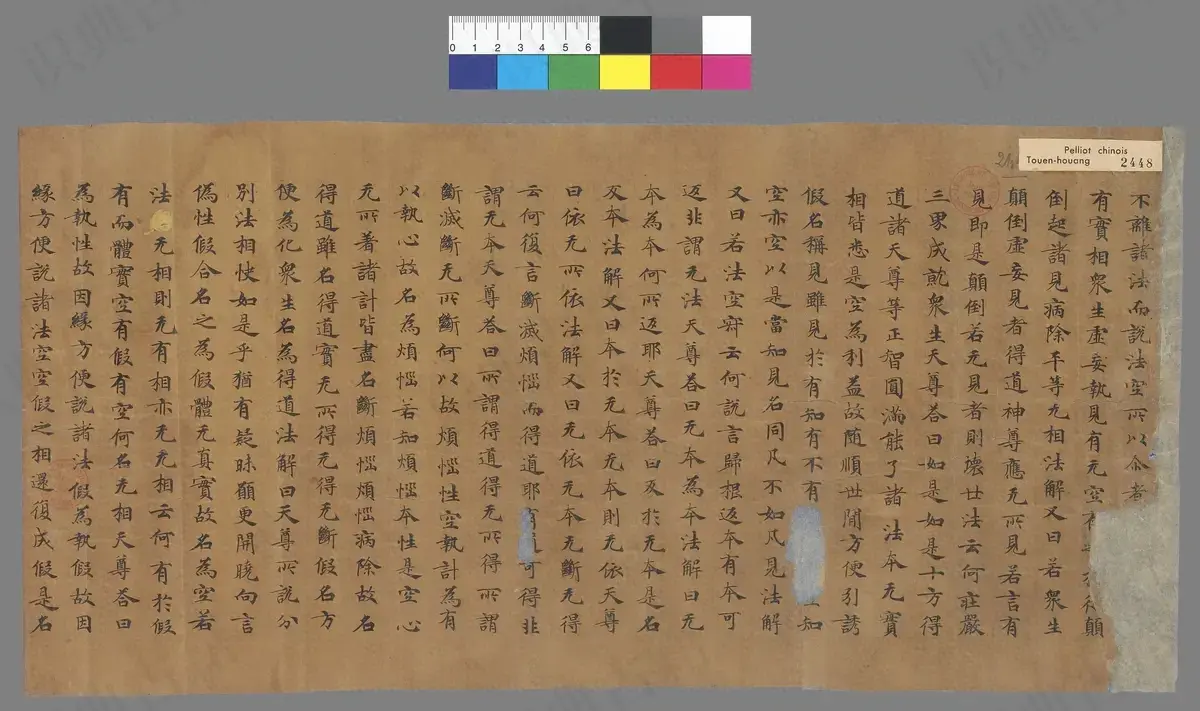 不離諸法而說法空所以尒者
有實相衆生虛妄執見有无空有 顛
倒起諸見病除平等无相法解又曰若衆生
顛倒虛妄見者得道神尊應无所見若言有
見即是顛倒若无見者則壊世法云何莊嚴
三界成就衆生天尊荅曰如是如是十方得
道諸天尊等正智圓滿能了諸法本无實
相皆悉是空為利益故随順世閒方便引誘
假名稱見雖見於有知有不有 知
空亦空以是當知見名同凡不如凡見法解
又曰若法空寂云何說言歸根返本有本可
返非謂无法天尊荅曰无本為本法解曰无
本為本何所返耶天尊荅曰及於无本是名
及本法解又曰本於无本无本則无依天尊
曰依无所依法解又曰无依无本无斷无得
云何復言斷滅煩惱而得道耶 可得非
謂无本天尊荅曰所謂得道得无所得所謂
斷滅斷无所斷何以故煩惱性空執計為有
以執心故名為煩惱若知煩惱本性是空心
无所著諸計皆盡名斷煩惱煩惱病除故名
得道雖名得道實无所得无得无斷假名方
便為化衆生名為得道法解曰天尊所說分
別法相快如是乎猶有疑昧願更開曉向言
偽性假合名之為假體无真實故名為空若
法 无相則无有相亦无无相云何有於假
有而體實空有假有空何名无相天尊荅曰
為執性故因緣方便說諸法假為執假故因
緣方便說諸法空空假之相還復成假是名
Pelliot chinois
Touen-houang 2448
0 1 2 3 4 5 6